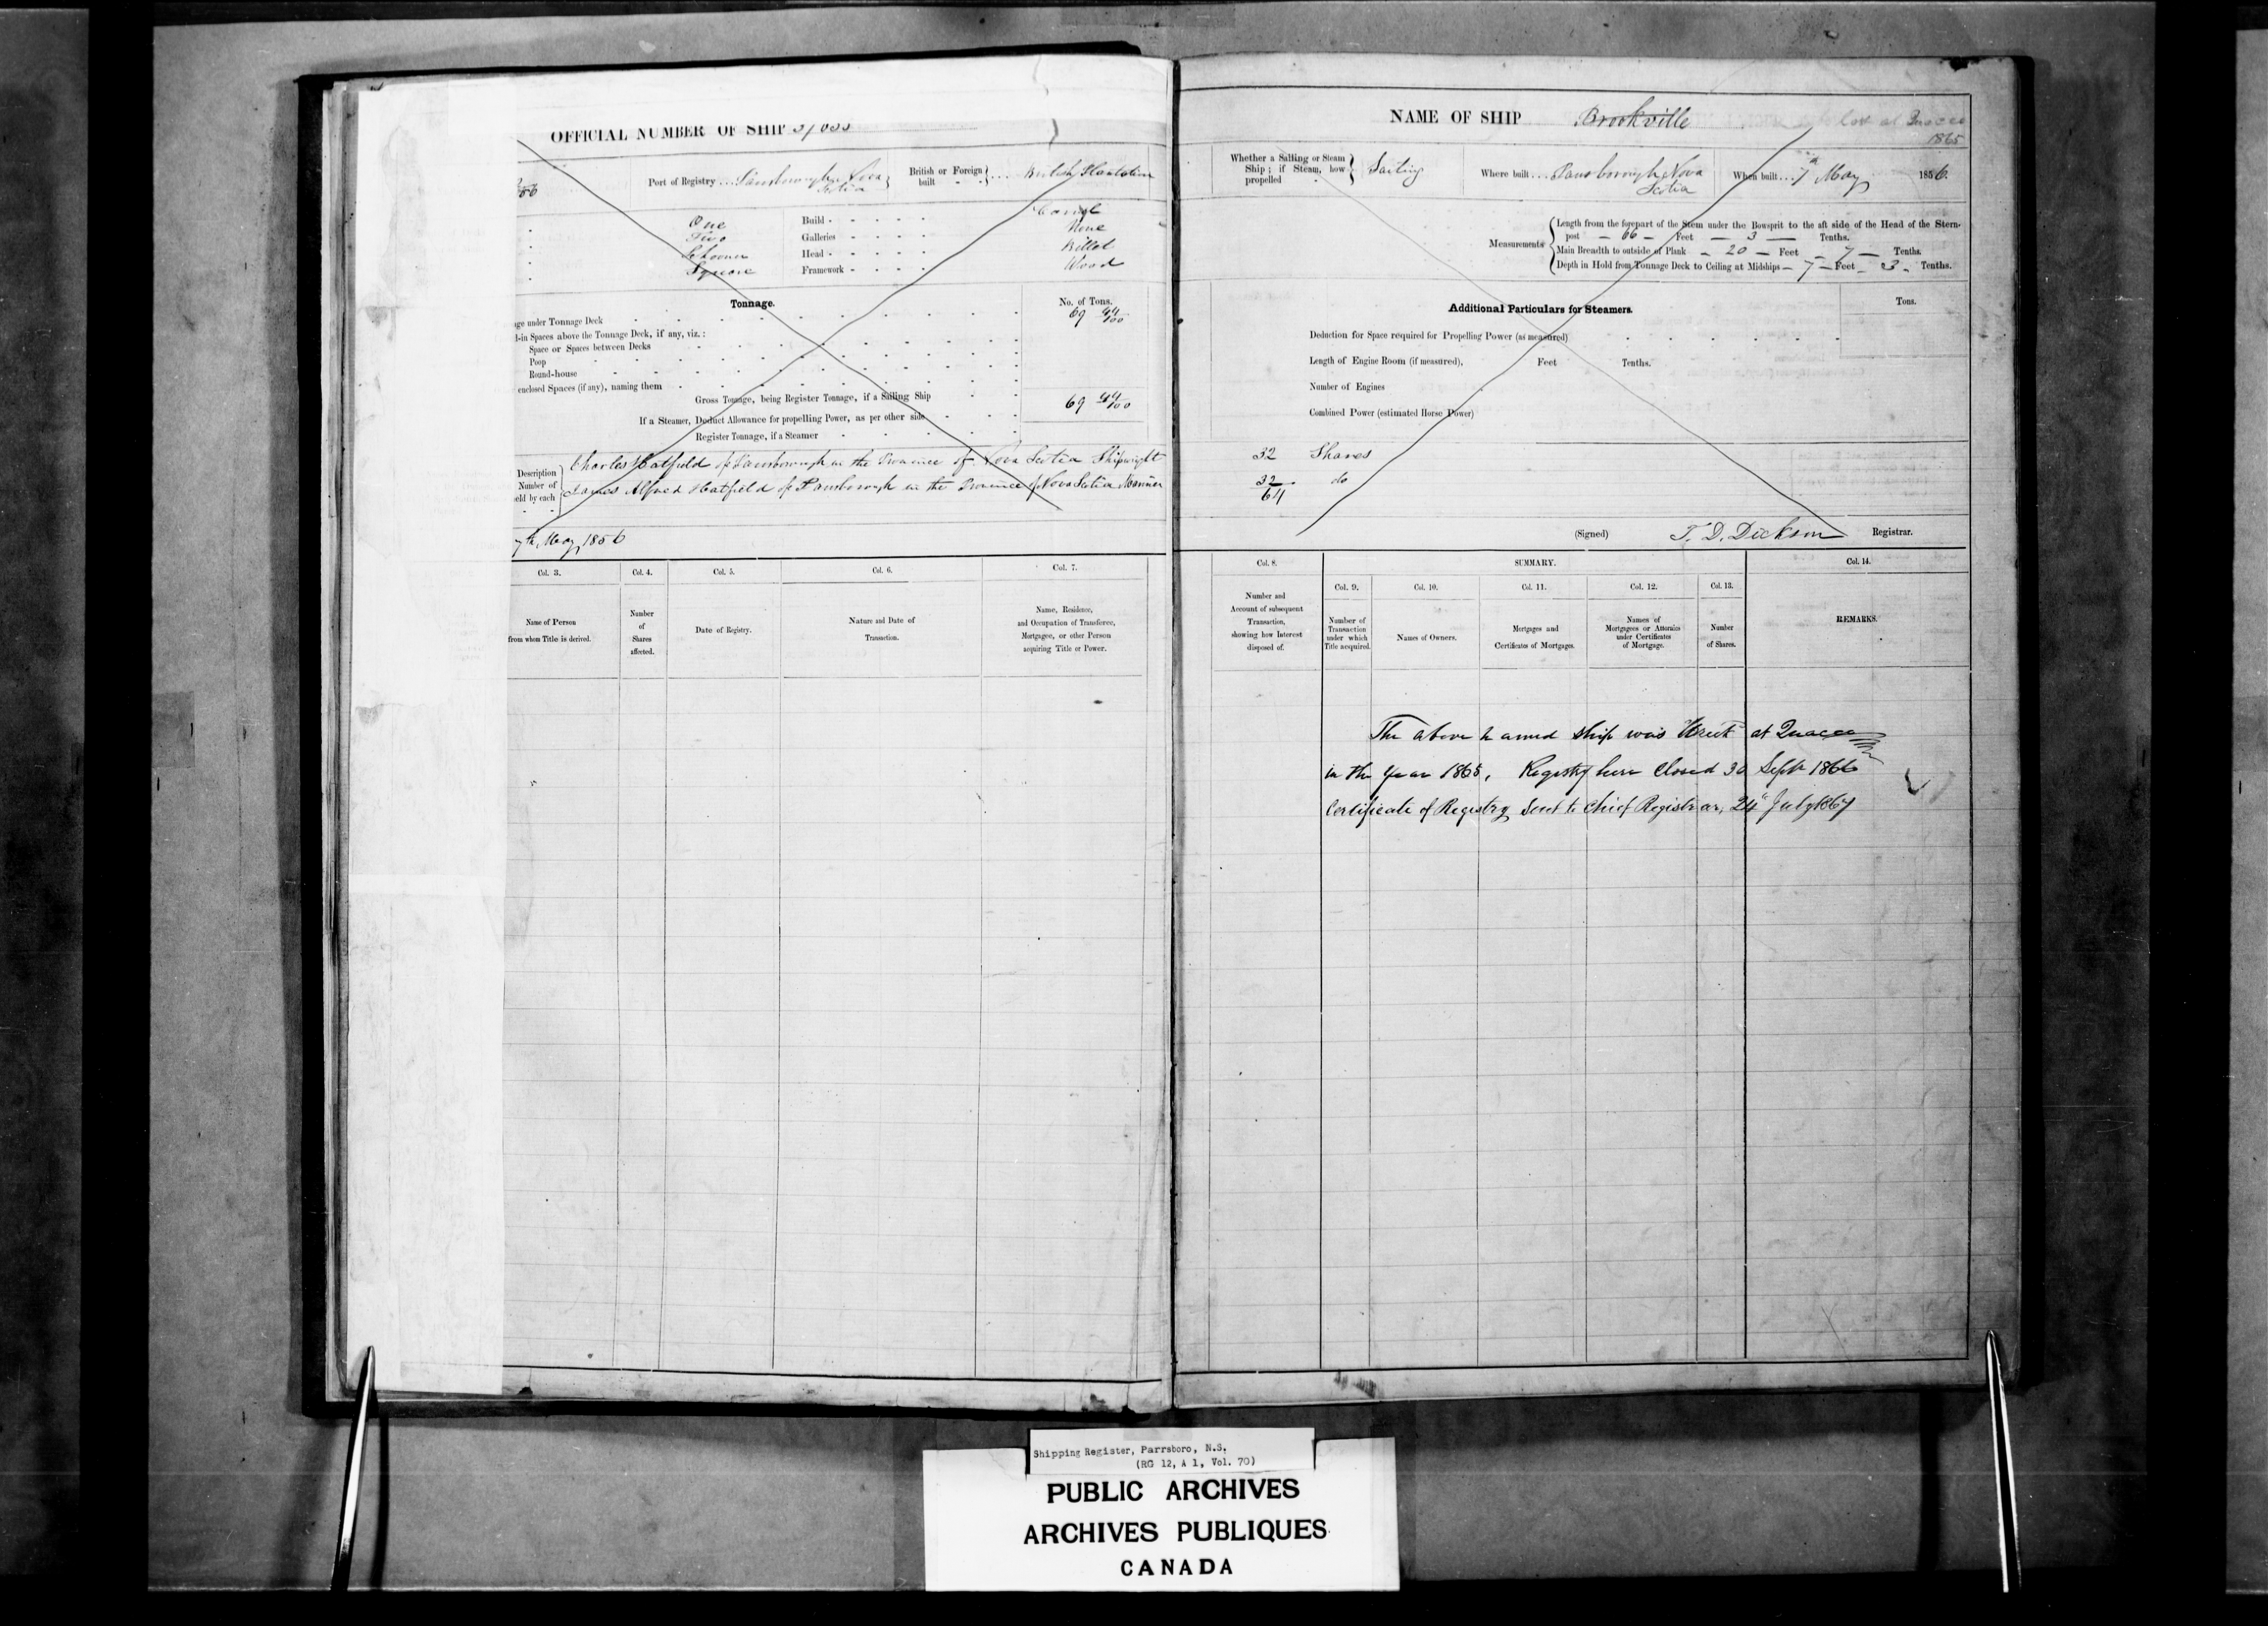 OFFICIAL NUMBER OF SHIP
Port of Registry ... Parrsborough Nova Scotia
British or Foreign built
British Plantation
One
Two
Schooner
Square
Build
Galleries
Head
Framework
Carvel
None
Billet
Wood
Tonnage.
No. of Tons.
under Tonnage Deck
69 44/100
Spaces above the Tonnage Deck, if any, viz.:
Space or Spaces between Decks
Poop
Round-house
enclosed Spaces (if any), naming them
Gross Tonnage, being Register Tonnage, if a Sailing Ship
69 44/100
If a Steamer, Deduct Allowance for propelling Power, as per other side
Register Tonnage, if a Steamer
Description
Number of
held by each
Charles Hatfield of Parrsborough in the Province of Nova Scotia Shipwright
James Alfred Hatfield of Parrsborough in the Province of Nova Scotia Mariner
7th May 1856
Col. 3.
Col. 4.
Col. 5.
Col. 6.
Col. 7.
Name of Person
from whom Title is derived.
Number
of
Shares
affected.
Date of Registry.
Nature and Date of
Transaction.
Name, Residence,
and Occupation of Transferee,
Mortgagee, or other Person
acquiring Title or Power.
NAME OF SHIP Brookville
lost at Quaco
1865
Whether a Sailing or Steam
Ship; if Steam, how
propelled
Sailing
Where built ... Parrsborough Nova
Scotia
When built ... 7th May 1856.
Measurements
Length from the forepart of the Stem under the Bowsprit to the aft side of the Head of the Stern-
post — 66 — Feet — 3 — Tenths.
Main Breadth to outside of Plank — 20 — Feet — 7 — Tenths.
Depth in Hold from Tonnage Deck to Ceiling at Midships — 7 — Feet — 3 — Tenths.
Additional Particulars for Steamers.
Tons.
Deduction for Space required for Propelling Power (as measured)
Length of Engine Room (if measured), Feet Tenths.
Number of Engines
Combined Power (estimated Horse Power)
32 Shares
32 do
64
(Signed) T. D. Dickson Registrar.
Col. 8.
SUMMARY.
Col. 14.
Col. 9.
Col. 10.
Col. 11.
Col. 12.
Col. 13.
Number and
Account of subsequent
Transaction,
showing how Interest
disposed of.
Number of
Transaction
under which
Title acquired.
Names of Owners.
Mortgages and
Certificates of Mortgages.
Names of
Mortgagees or Attornies
under Certificates
of Mortgage.
Number
of Shares.
REMARKS.
The above named ship was Wrect at Quaco
in the year 1865, Registry here Closed 30 Septr 1866
Certificate of Registry Sent to Chief Registrar, 24" July 1867
Shipping Register, Parrsboro, N.S.
(RG 12, A 1, Vol. 70)
PUBLIC ARCHIVES
ARCHIVES PUBLIQUES
CANADA